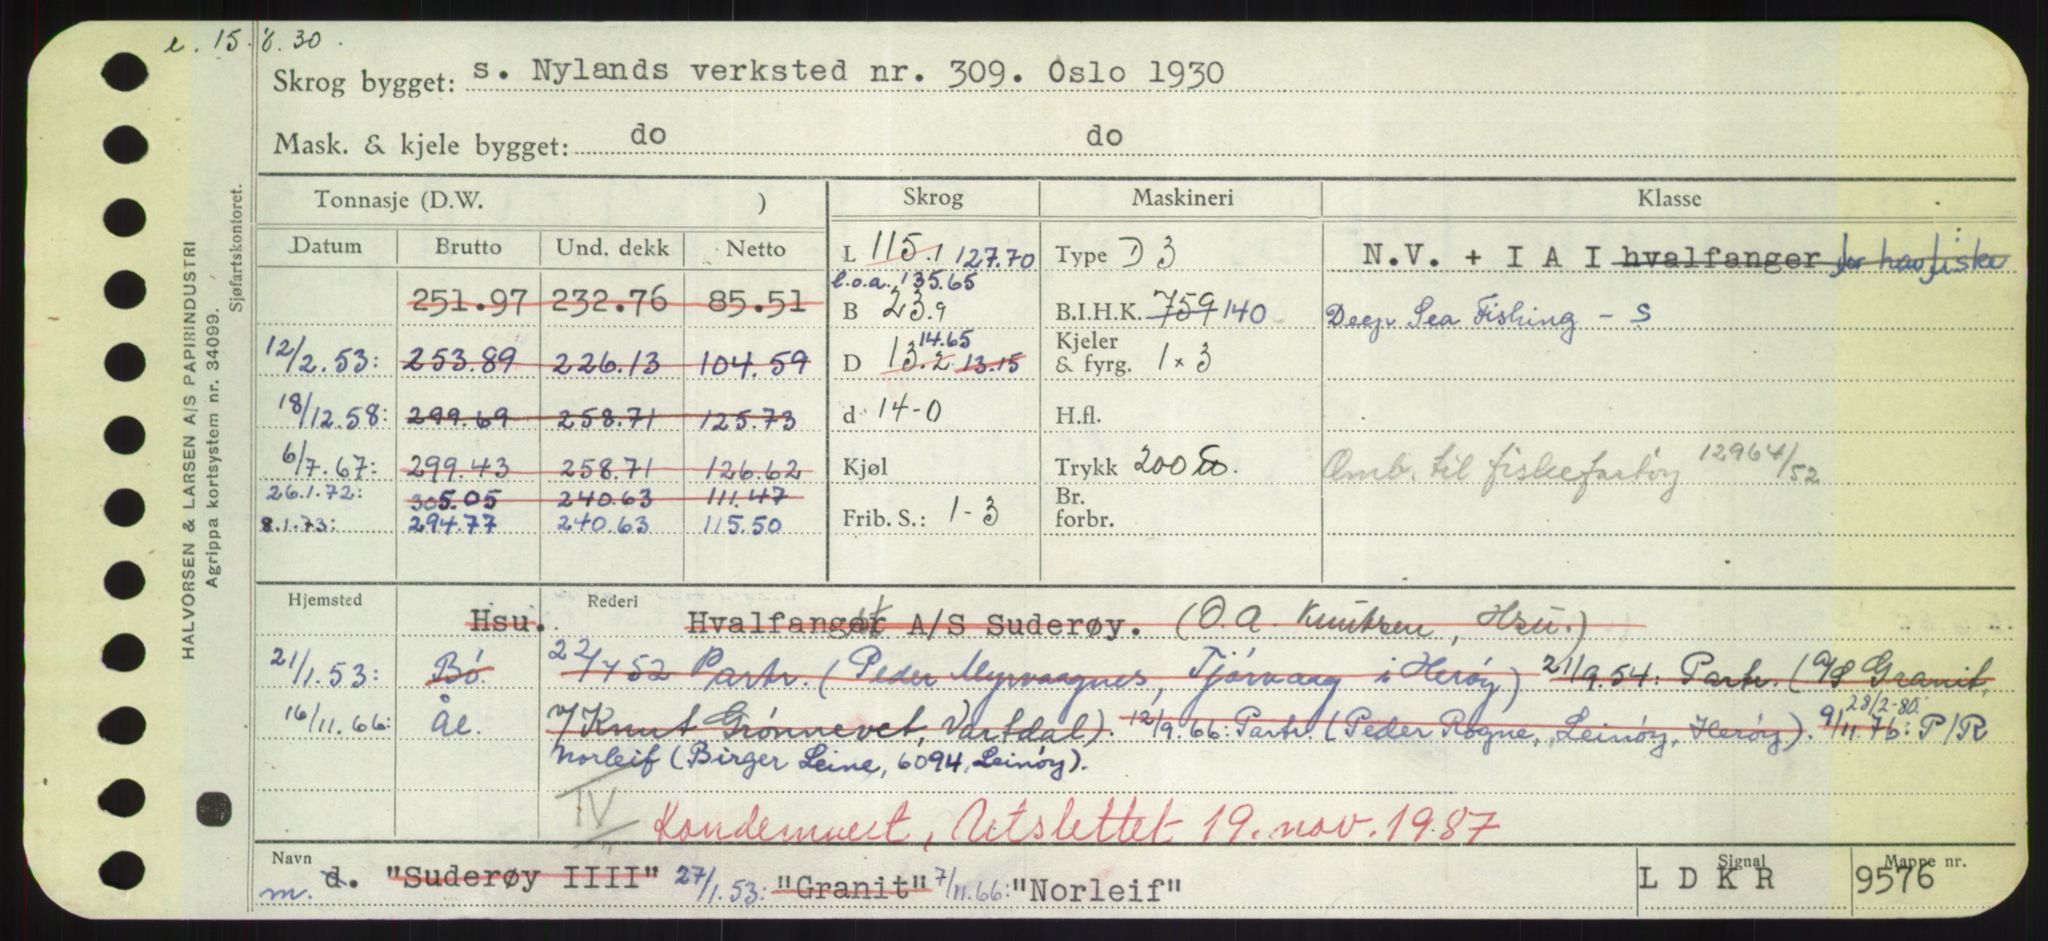 e. 15.8.30.
Skrog bygget: s. Nylands verksted nr. 309. Oslo 1930
Mask. & kjele bygget: do do
HALVORSEN & LARSEN A/S PAPIRINDUSTRI
Agrippa kortsystem nr. 34099.
Sjøfartskontoret.
Tonnasje (D.W. ) Skrog Maskineri Klasse
Datum Brutto Und. dekk Netto L 115.1 127.70 Type D 3 N.V. + I A I hvalfanger for havfiske
l.o.a. 135.65
251.97 232.76 85.51 B 23.9 B.I.H.K. 759 140 Deep Sea Fishing - S
14.65 Kjeler
12/2.53: 253.89 226.13 104.59 D 13.2 13.15 & fyrg. 1 x 3
18/12.58: 299.69 258.71 125.73 d 14-0 H.fl.
6/7.67: 299.43 258.71 126.62 Kjøl Trykk 200 Omb. til fiskefartøy 12964/52
26.1.72: 305.05 240.63 111.47 Br.
8.1.73: 294.77 240.63 115.50 Frib. S.: 1-3 forbr.
Hjemsted Rederi
Hsu. Hvalfangst A/S Suderøy. (O.A. Knutsen, Hsu.)
21/1.53: Bó. 22/7 52 Partr. (Peder Myrvaagnes, Tjórvaag i Herøy) 21/9.54: Partr. (A/S Granit,
28/2-80.
16/11.66: Ål. v/Knut Grønnevet, Vartdal). 12/9.66: Partr. (Peder Rogne, Leinøy, Herøy). 9/11.76: P/R
Norleif (Birger Leine, 6094, Leinøy).
IV Kondemnert, Utslettet 19. nov. 1987
Navn Signal Mappe nr.
m. d. "Suderøy IIII" 27/1.53: "Granit" 7/11.66: "Norleif" L D K R 9576